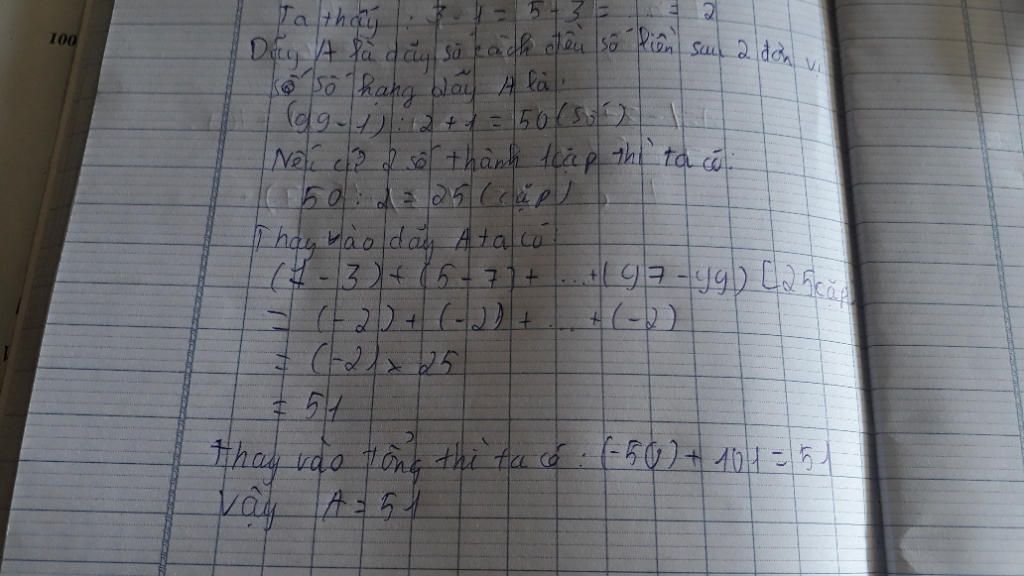 100
Ta thấy : 3 - 1 = 5 - 3 = ... = 2
Dãy A là dãy số cách đều số liền sau 2 đơn vị
Số số hạng dãy A là:
(99 - 1) : 2 + 1 = 50 (số)
Nếu cứ 2 số thành 1 cặp thì ta có:
50 : 2 = 25 (cặp)
Thay vào dãy A ta có:
(1 - 3) + (5 - 7) + ... + (97 - 99) [25 cặp
= (-2) + (-2) + ... + (-2)
= (-2) x 25
= 51
Thay vào tổng thì ta có : (-50) + 101 = 51
Vậy A = 51